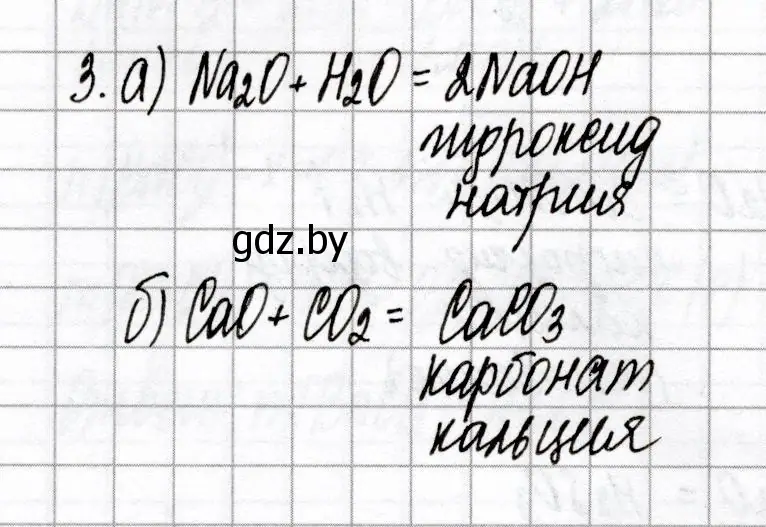 3. а) Na₂O + H₂O = 2NaOH
гидроксид
натрия
gdz.by
б) CaO + CO₂ = CaCO₃
карбонат
кальция